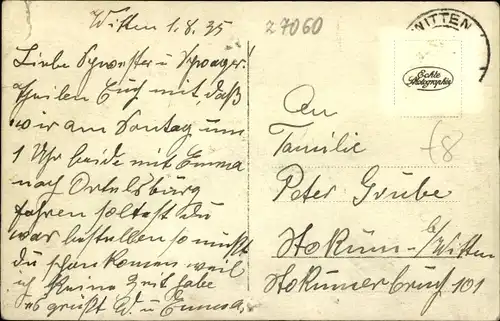 Witten 1.8.35
z 7060
WITTEN
Liebe Schwester u Schwager.
Theilen Euch mit, daß
wir am Sontag um
1 Uhr beide mit Emma
nach Ortelsburg
fahren solltest Du
was bestellen so mußt
Du schon komen weil
ich keine Zeit habe
es grüßt W. u Emma.
Echte
Photographie
An
Familie
Peter Grube
Stokum b/Witten
Stokumer bruch 101
€8